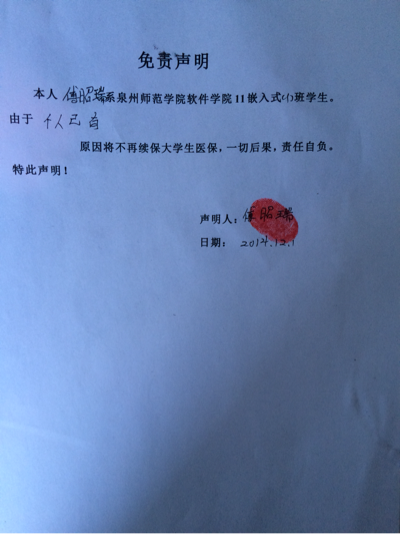 免责声明
本人 傅昭瑞系泉州师范学院软件学院11嵌入式(1)班学生。
由于 个人已有
原因将不再续保大学生医保，一切后果，责任自负。
特此声明！
声明人：傅昭瑞
日期： 2014.12.1